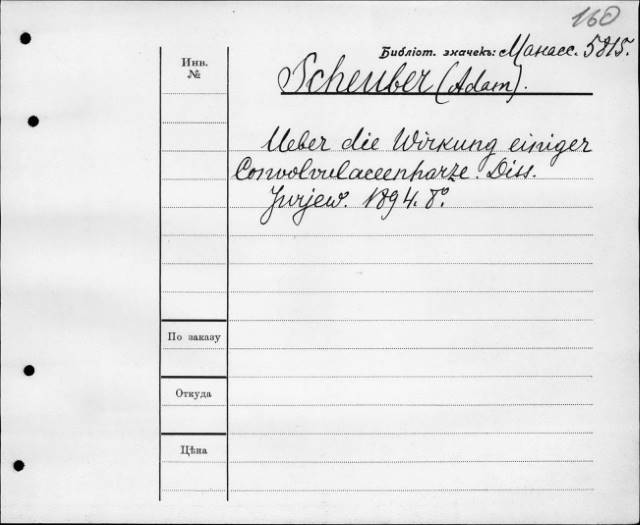 160
Библіот. значекъ: Манасс. 5815.
Инв.
№
Scheuber (Adam).
Ueber die Wirkung einiger
Convolvulaceenharze. Diss.
Jurjew. 1894. 8°.
По заказу
Откуда
Цѣна